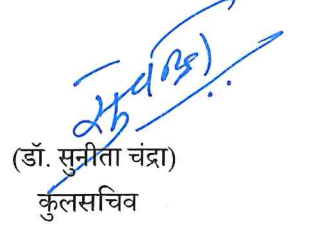 (डॉ. सुनीता चंद्रा)
कुलसचिव